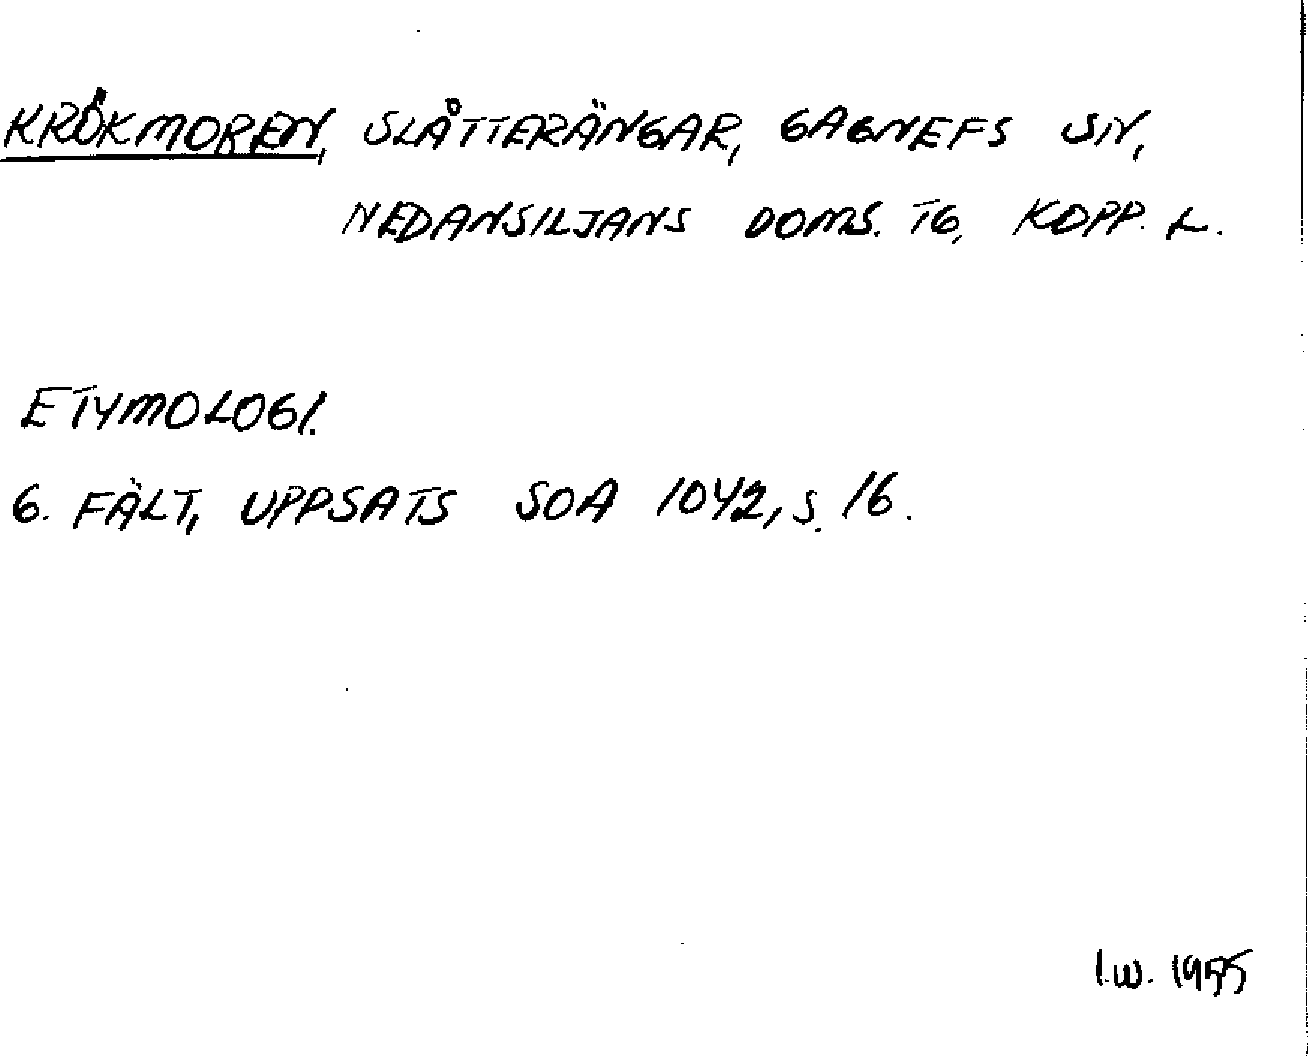 KRÖKMOREN, SLÅTTERÄNGAR, GAGNEFS SN,
NEDANSILJANS DOMS. TG, KOPP. L.
ETYMOLOGI.
G. FÄLT, UPPSATS SOA 1042, S. 16.
I.W. 1955